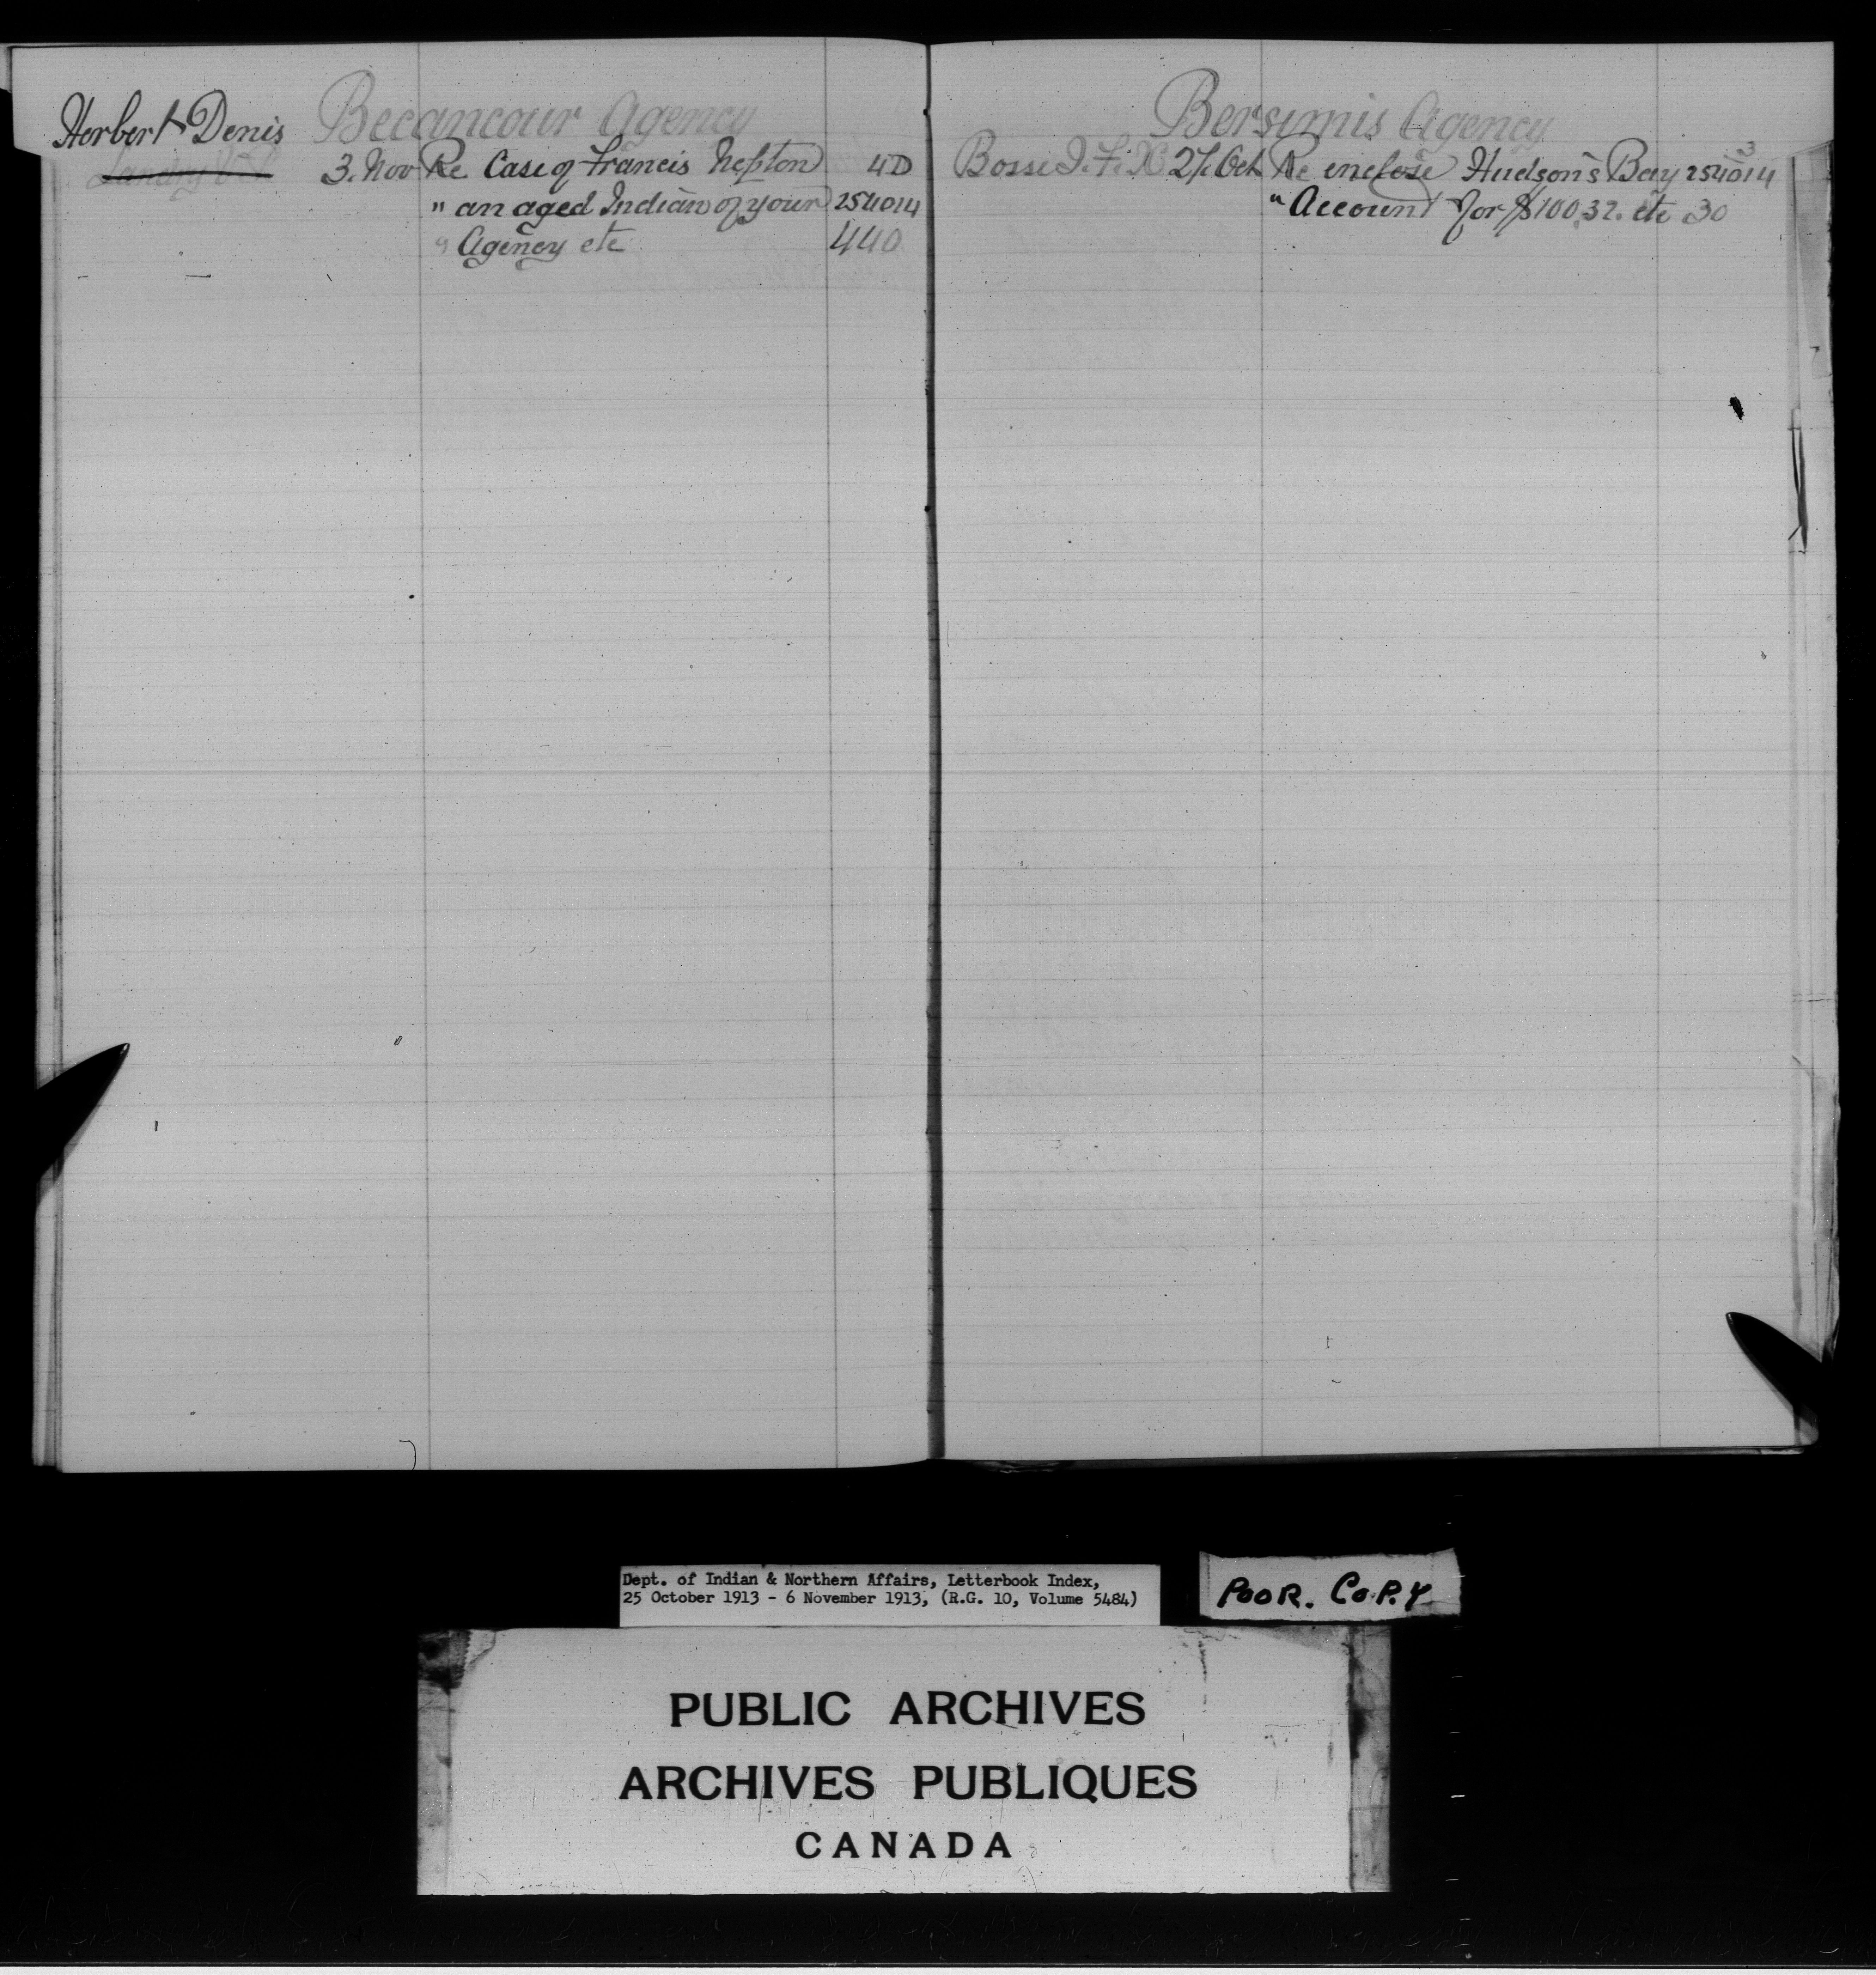 Becancour Agency
Herbert Denis
Landry
3. Nov Re Case of Francis Nepton 4D
" an aged Indian of your 254014
" Agency etc 440
Bersimis Agency
3
Bosse J. F. X 27. Oct Re enclose Hudson's Bay 254014
" Account for $100.32. etc 30
Dept. of Indian & Northern Affairs, Letterbook Index,
25 October 1913 - 6 November 1913, (R.G. 10, Volume 5484)
POOR. COPY
PUBLIC ARCHIVES
ARCHIVES PUBLIQUES
CANADA